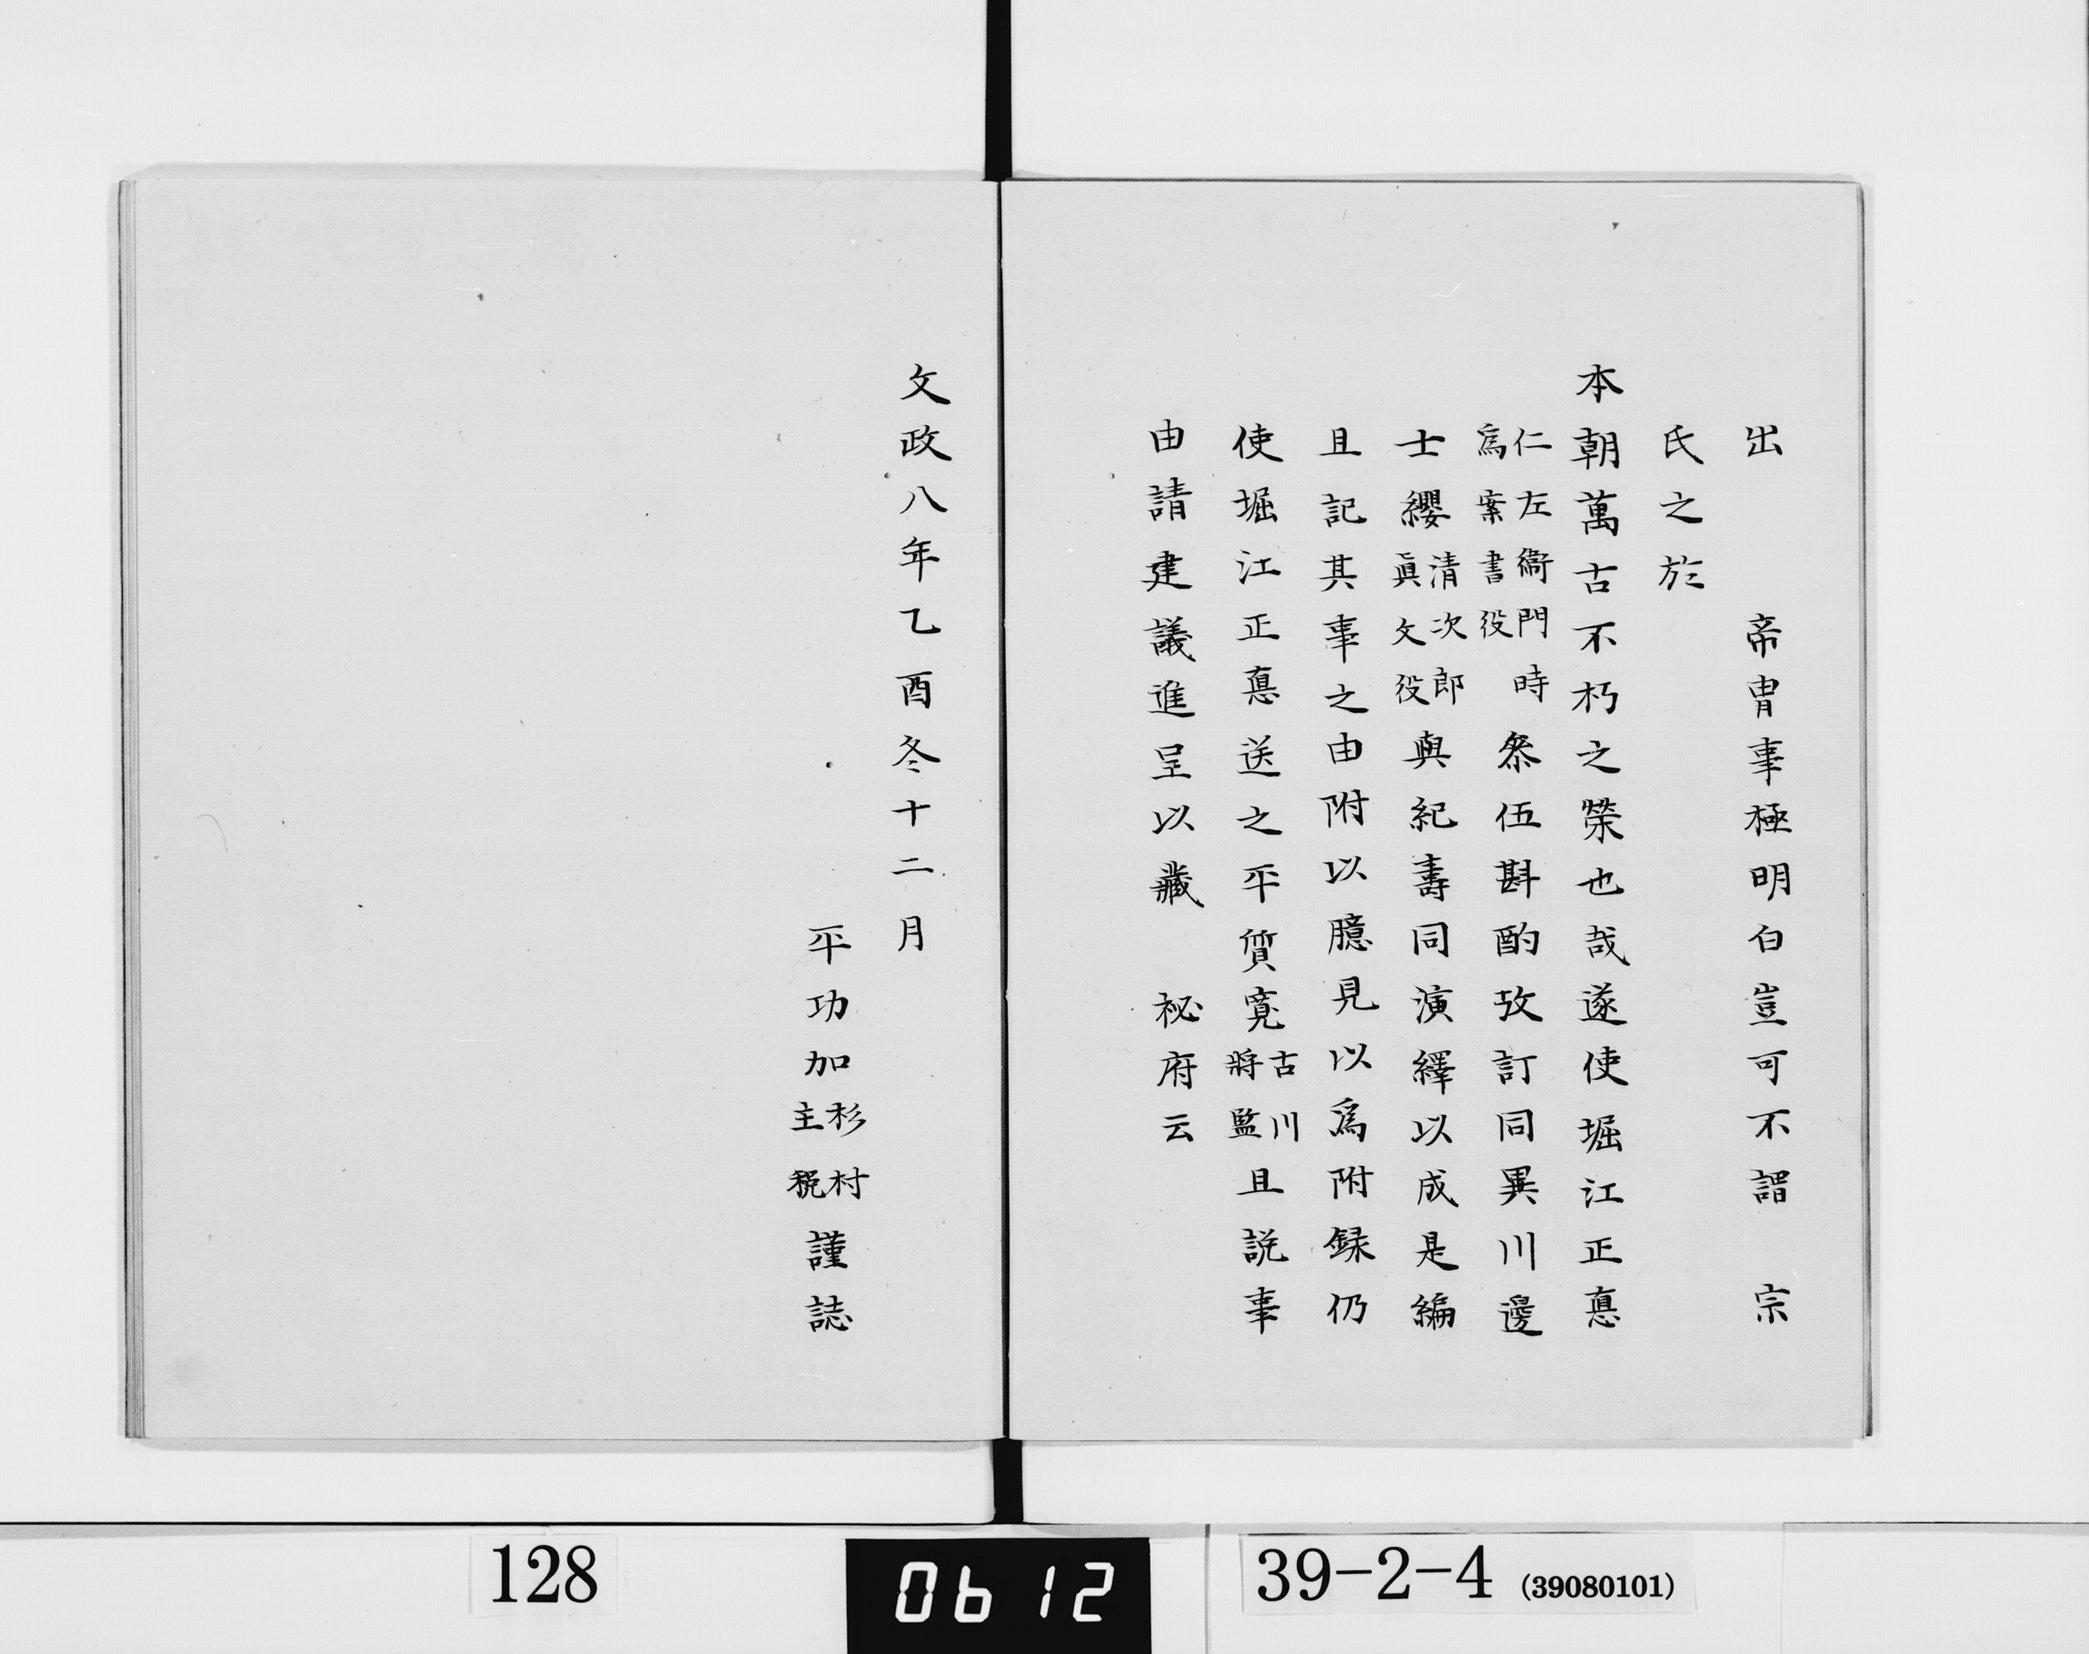 出　　帝冑事極明白豈可不謂　宗
氏之於
本朝萬古不朽之榮也哉遂使堀江正悳
仁左衞門時
爲案書役
叅伍斟酌攷訂同異川邊
士纓
清次郎
眞文役
與紀壽同演繹以成是編
且記其事之由附以臆見以爲附録仍
使堀江正悳送之平質寛
古川
將監
且説事
由請建議進呈以藏　秘府云
文政八年乙酉冬十二月
平功加
杉村
主税
謹誌
128
0612
39-2-4 (39080101)